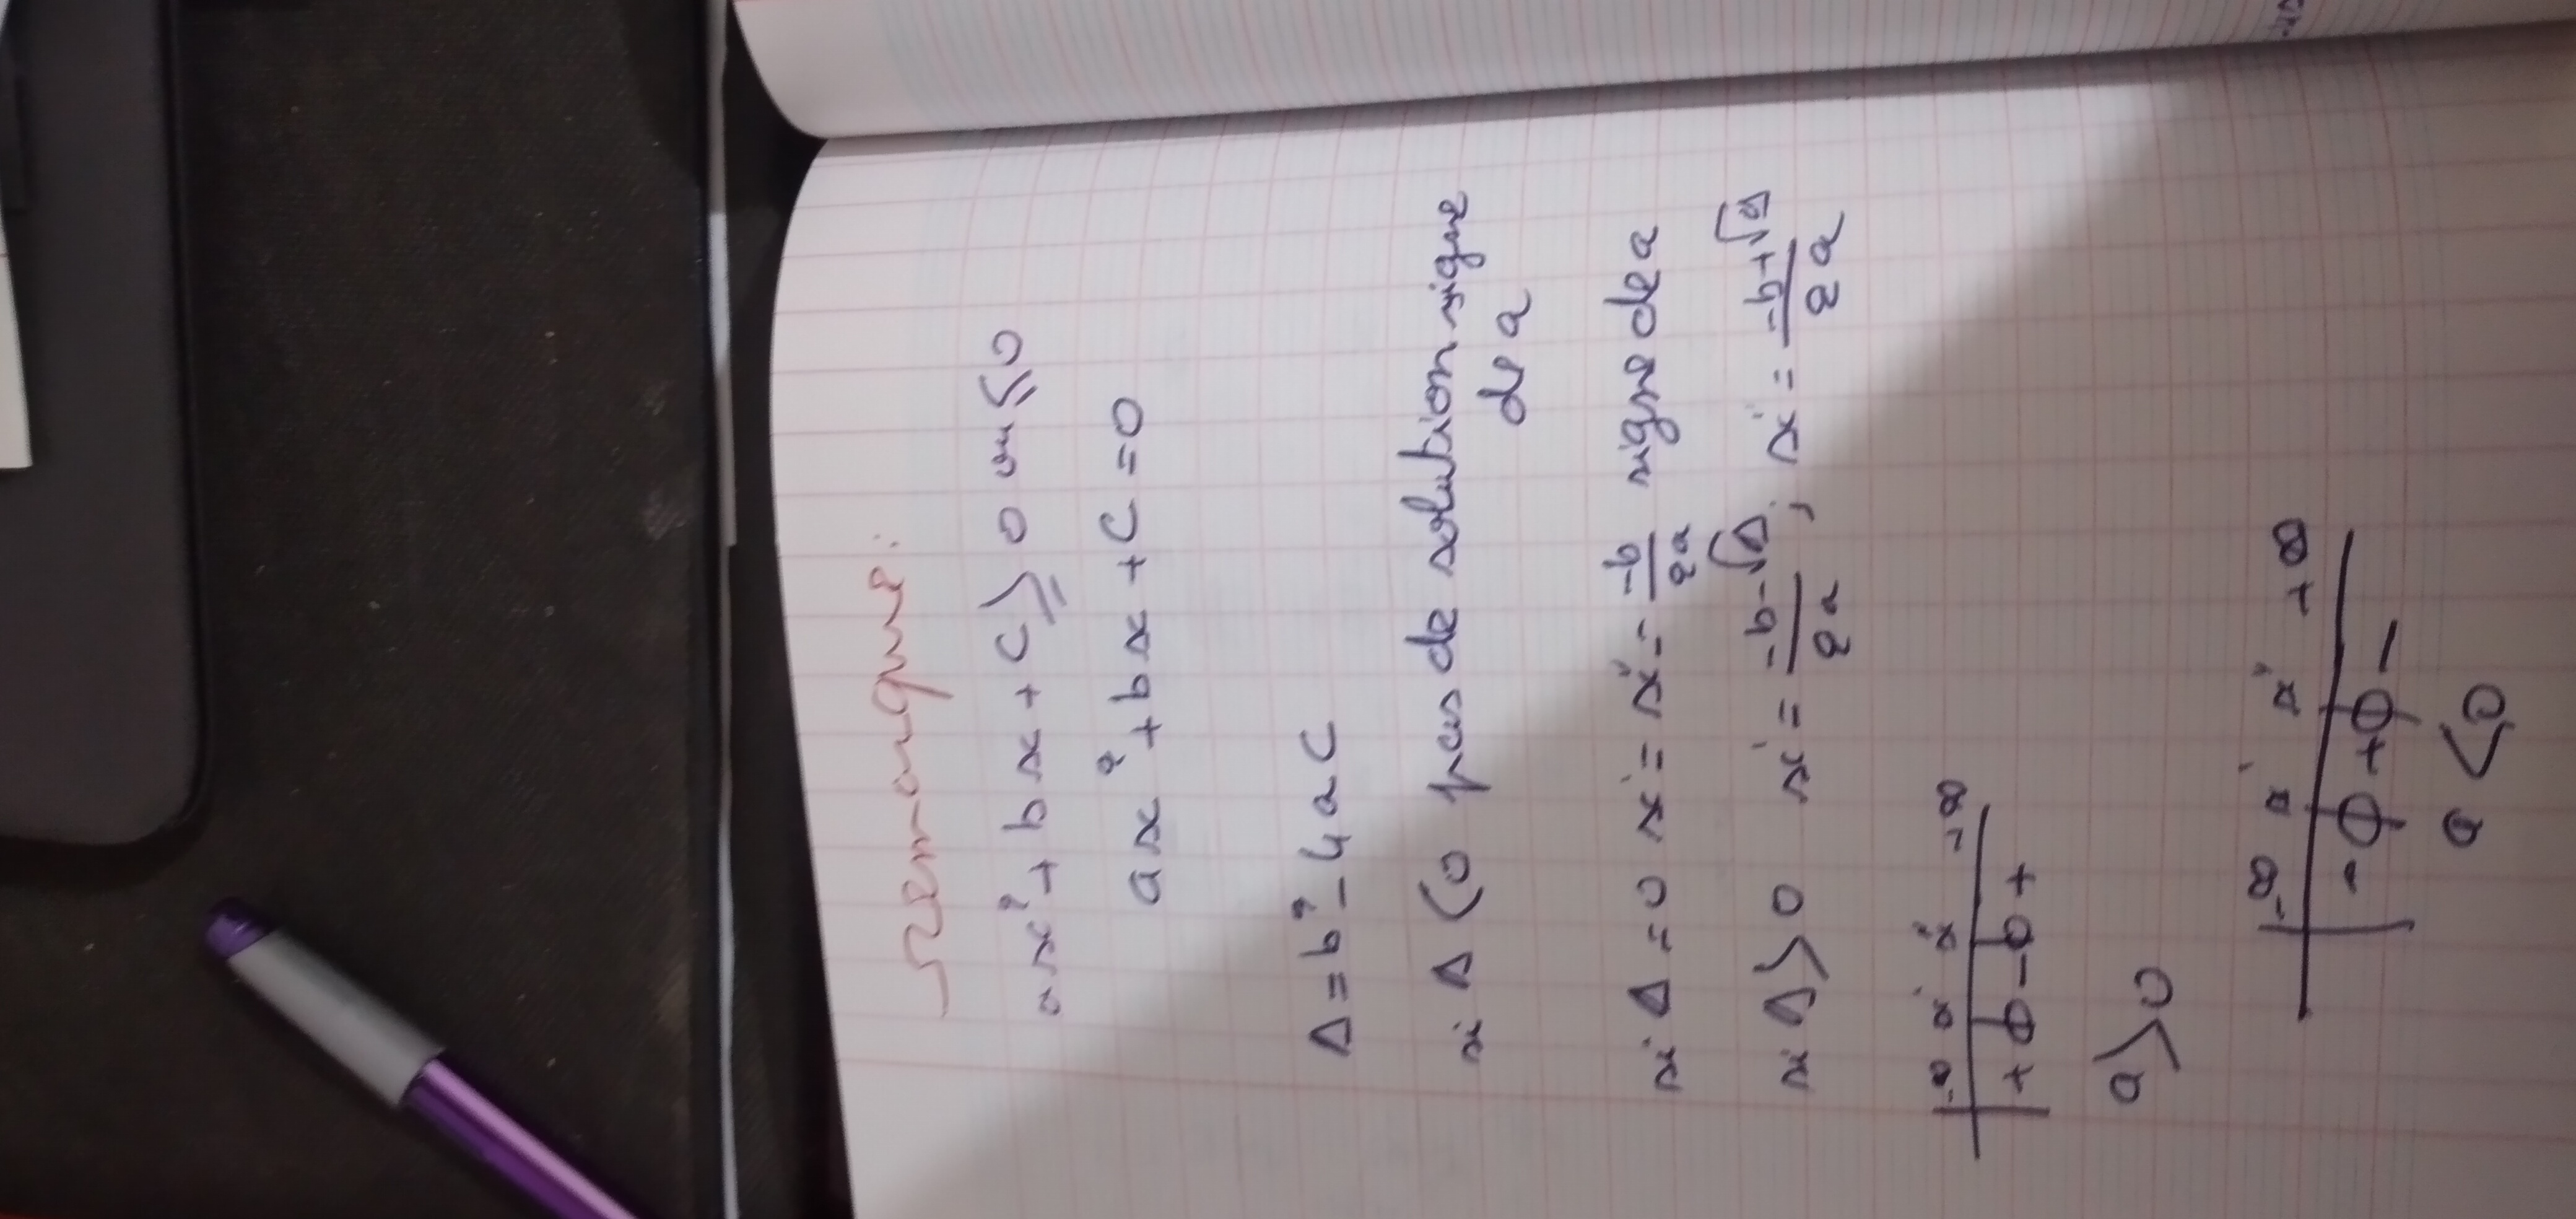 remarque:
ax² + bx + C ≥ 0 ou ≤ 0
ax² + bx + C = 0
Δ = b² - 4aC
si Δ < 0 pas de solution signe
de a
si Δ = 0 x' = x'' = -b/2a signe de a
si Δ > 0 x' = -b-√Δ/2a ; x'' = -b+√Δ/2a
-∞ x' x'' -∞
+ 0 - 0 +
a > 0
-∞ x' x'' +∞
- 0 + 0 -
a < 0